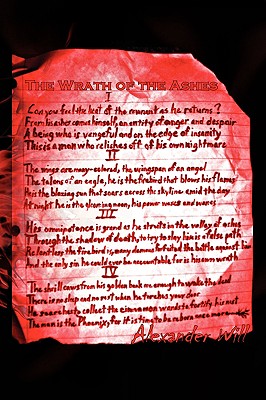 The Wrath of the Ashes
I
Can you feel the heat of the remnant as he returns?
From his ashes comes himself, an entity of anger and despair
A being who is vengeful and on the edge of insanity
This is a man who relishes off of his own nightmare
II
The wings are many-colored, the wingspan of an angel
The talons of an eagle, he is the firebird that blows his flames
He is the blazing sun that soars across the skyline amid the day
At night he is the gleaming moon, his power waxes and wanes
III
His omnipotence is grand as he struts in the valley of ashes
Through the shadow of death, to try to slay him is a false path
Relentless the fire bird is, many damned forfeited the battle against him
And the only sin he could ever be accountable for is his own wrath
IV
The shrill caws from his golden beak are enough to wake the dead
There is no sleep and no rest when he torches your door
He soars to collect the cinnamon wands to fortify his nest
The man is the Phoenix, for it is time to be reborn once more
Alexander Will